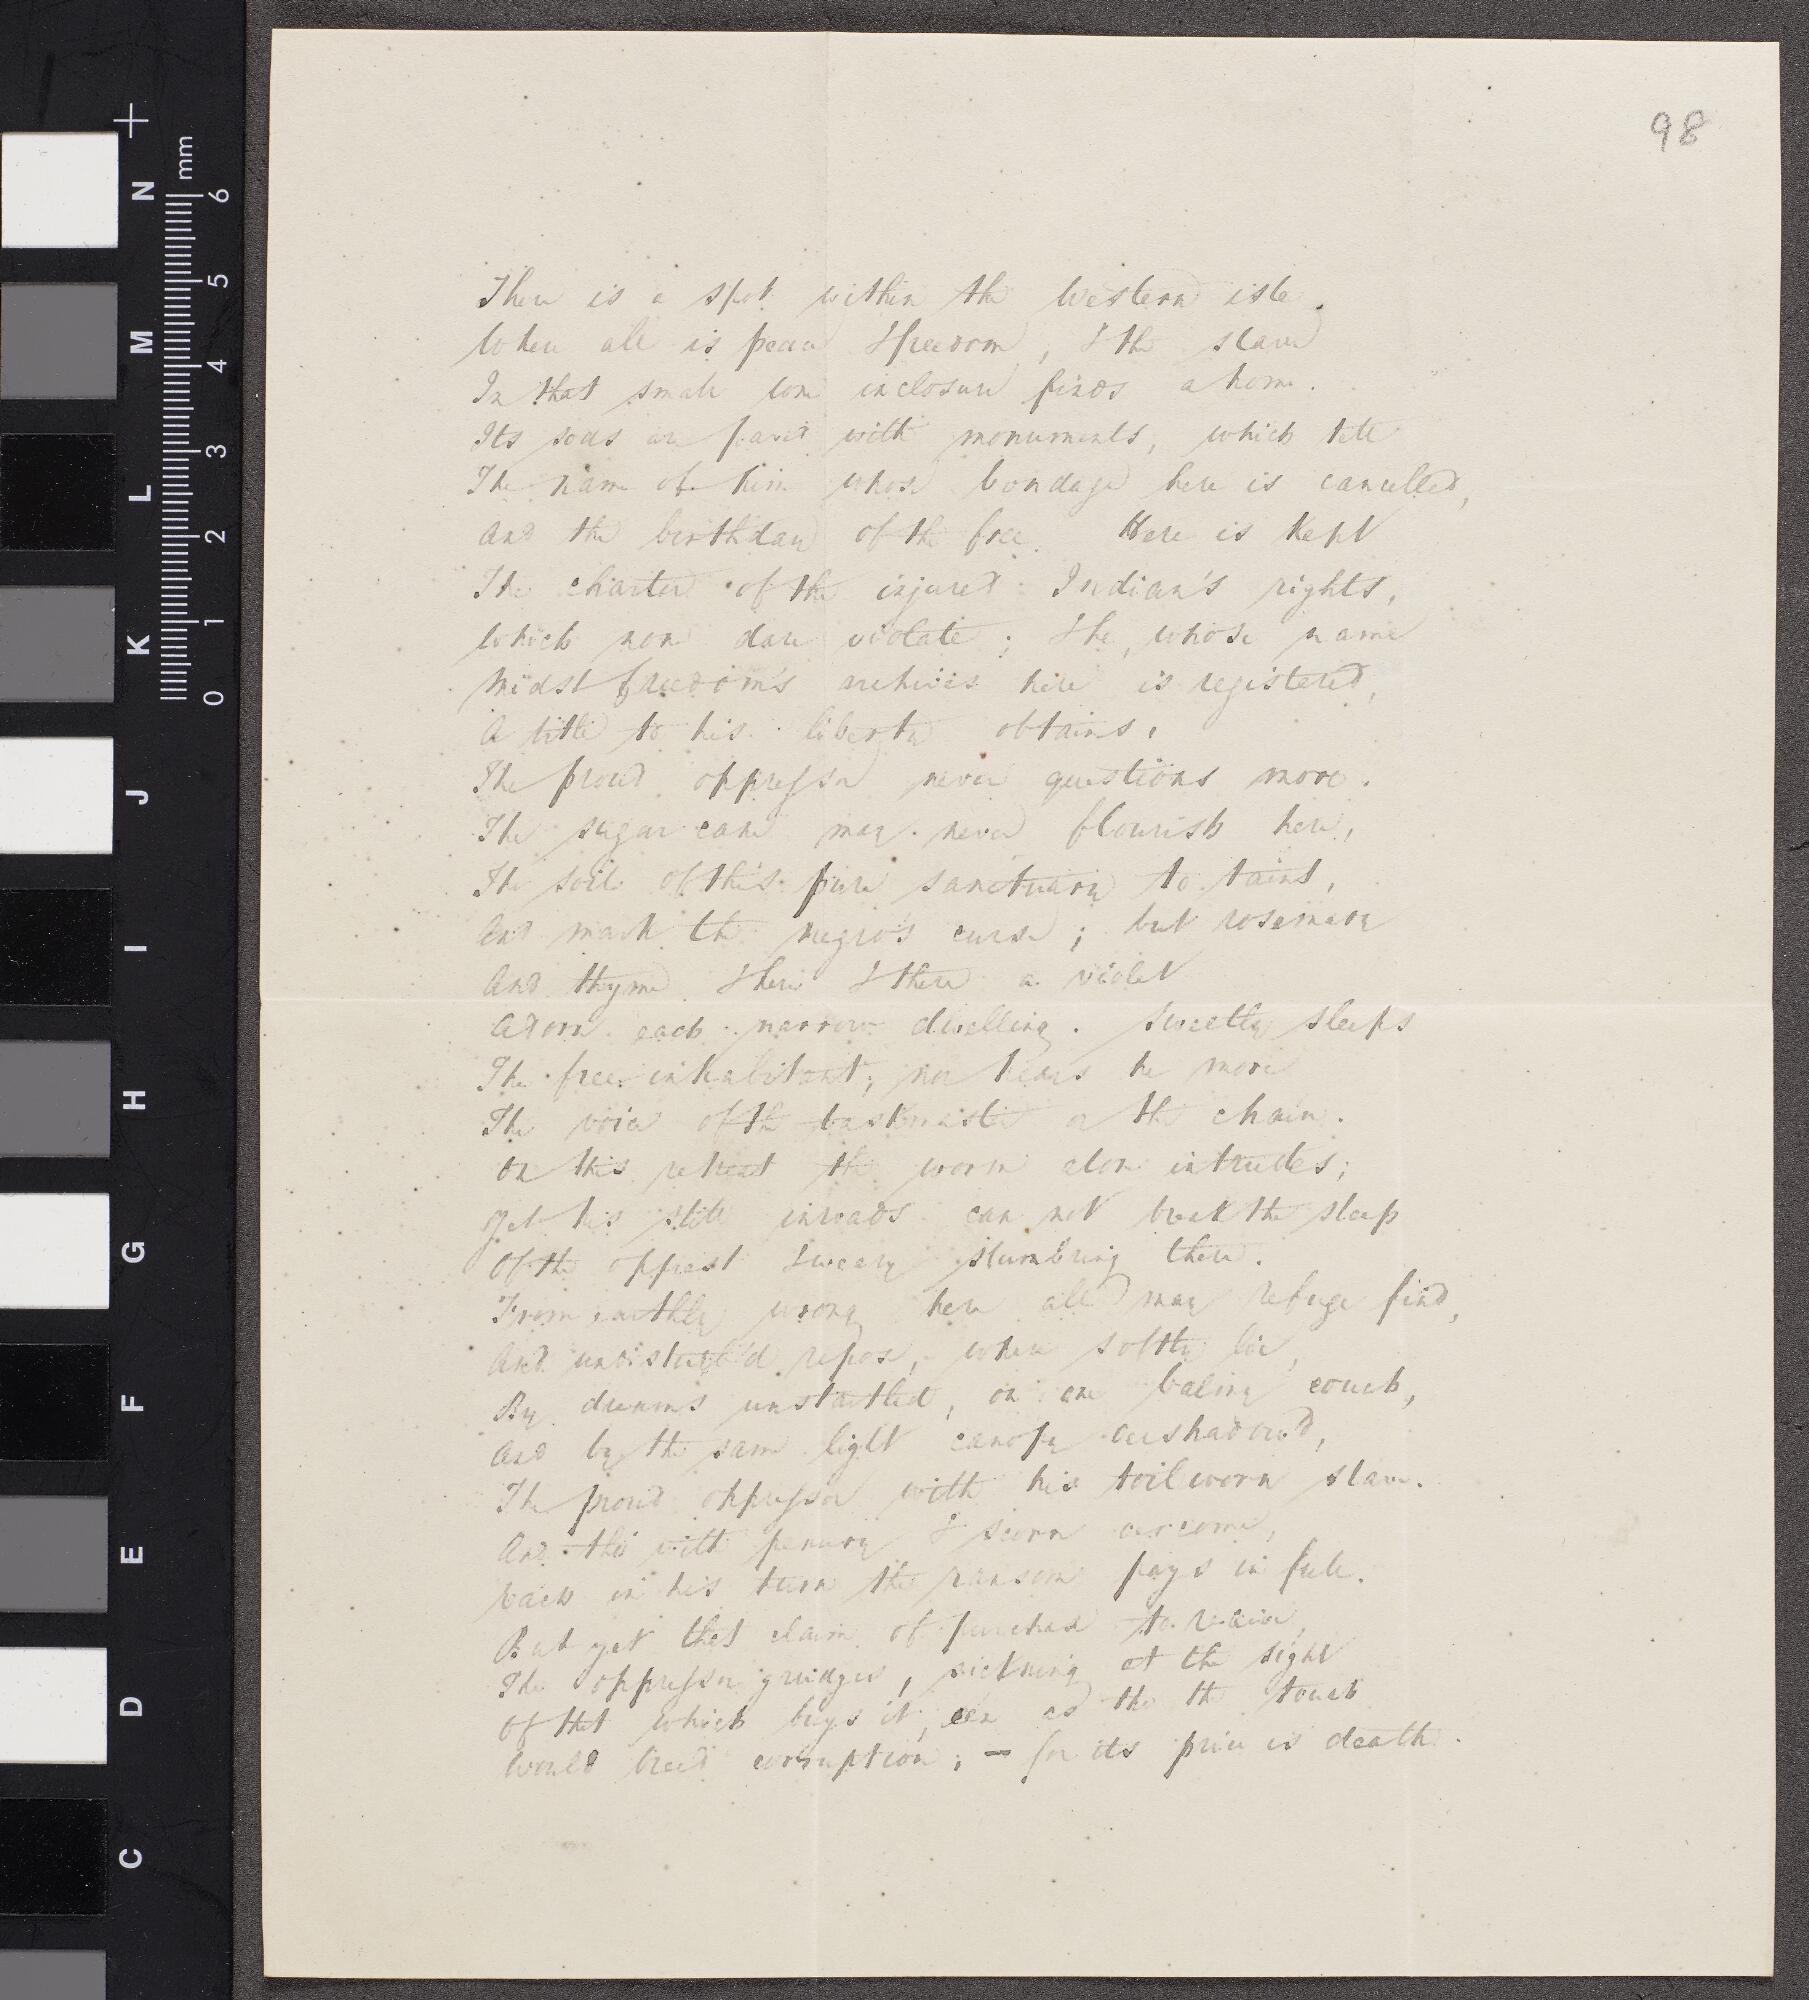 98
There is a spot within the Western isle,
Where all is peace & freedom, & the slave
In that small lone inclosure finds a home.
Its sods are pav'd with monuments, which tell
The name of him whose bondage here is cancelled,
And the birthday of the free. Here is kept
The charter of the injured Indian's rights,
Which none dare violate; & he, whose name
Midst freedom's archives here is registered,
A title to his liberty obtains,
The proud oppressor never questions more.
The sugar cane may never flourish here,
The soil of this pure sanctuary to taint,
And mark the negro's curse; but rosemary
And thyme & here & there a violet
Adorn each narrow dwelling. Sweetly sleeps
The free inhabitant; nor hears he more
The voice of the taskmaster or the chain.
On this retreat the worm alone intrudes;
Yet his still inroads can not break the sleep
Of the opprest & weary slumbring there.
From earthly wrong here all may refuge find,
And undisturb'd repose, where softly lie,
By dreams unstartled, on one balmy couch,
And by the same light canopy oershadow'd,
The proud oppressor with his toilworn slave.
And tho' with penury & scorn oercome,
Each in his turn the ransom pays in full.
But yet that claim of purchase to receive,
The oppressor grudges, sickning at the sight
Of that which buys it, een as tho the touch
Would breed corruption; – for its price is death.
N
M
L
K
J
I
H
G
F
E
D
C
mm
6
5
4
3
2
1
0